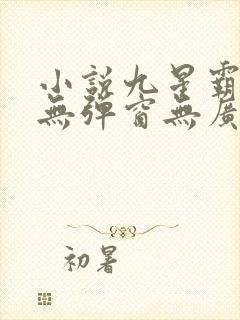 小說九星霸
無彈窗無廣
初暑